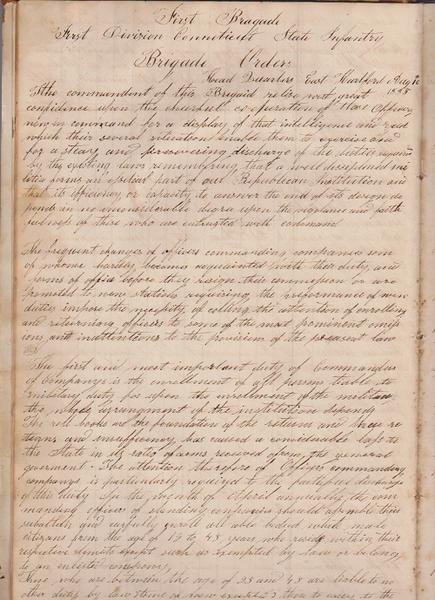 First Bragade
First Division Connecticut State Infantry
Brigade Orders
Head Quarters East Hartford Aug
The commandant of this Brigaid relies with great
confidence upon the cheerful co-operation of the Officers
now in command for a display of that intelligence and zeal
which their several situations enable them to exercise and
for a steady and persevering discharge of the duties required
by the existing laws remembering that a well disciplined mi
litia forms an essential part of our Republican Institution and
that its efficiency or capacity to answer the end of its design de
pends in no inconsiderable degree upon the vigilance and faith
fulness of those who are intrusted with command
The frequent changes of officers commanding companies som
of whome hardly becomes acquainted with their duty and
forms of office before they resign their commission or are
promoted to new stations requiring the preformance of new
duties impose the necessity of calling the attention of enrolling
and returning officers to some of the most prominent omiss
ions and inattentions to the provision of the present law
The first and most important duty of Commandas
of companys is the enrollment of all persons liable to
military duty for upon the enrollment of the militia
the whole arrangment of the institution depends
The roll books are the foundation of the return and
and insufficiency has caused a considerable loss to
the State in its ratio of arms received from the general
goverment. The attention therefore of Officers commanding
companys is particularly required to the faithful discharge
of this duty In the month of April annually the com
manding officers of standing companies should assemble their
subaltern and carfully enroll all able bodied white male
citizens from the age of 18 to 45 years who reside within their
respective limits except such as exempted by law or belong
to an company
Those who are between the age of and 45 are liable to no
other duties by law